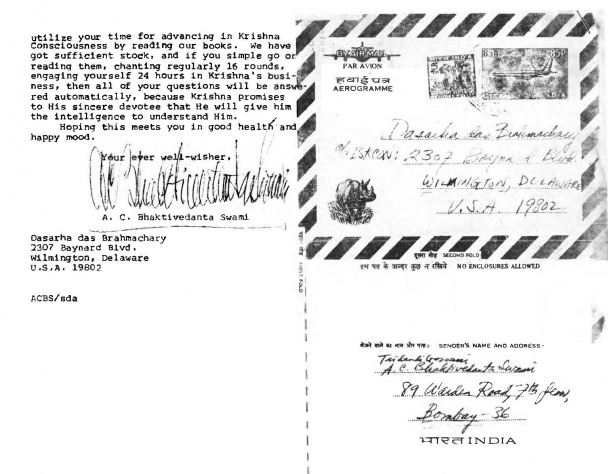 utilize your time for advancing in Krishna
Consciousness by reading our books. We have
got sufficient stock, and if you simple go on
reading them, chanting regularly 16 rounds,
engaging yourself 24 hours in Krishna's busi-
ness, then all of your questions will be answe-
red automatically, because Krishna promises
to His sincere devotee that He will give him
the intelligence to understand Him.
Hoping this meets you in good health and
happy mood.
Your ever well-wisher,
A. C. Bhaktivedanta Swami
Dasarha das Brahmachary
2307 Baynard Blvd.
Wilmington, Delaware
U.S.A. 19802
ACBS/sda
BY AIR MAIL
PAR AVION
हवाई पत्र
AEROGRAMME
85P
INDIA
Dasarha das Bramachary
c/o ISKCON: 2307 Blvd.
WILMINGTON, DELAWARE
U.S.A. 19802
दूसरा मोड़ SECOND FOLD
इस पत्र के अन्दर कुछ न रखिये NO ENCLOSURES ALLOWED
FIRST FOLD
भेजने वाले का नाम और पता:- SENDER'S NAME AND ADDRESS:-
Tridandi Goswami
A.C. Bhaktivedanta Swami
89 Warden Road, 7th floor,
Bombay-36
भारत INDIA